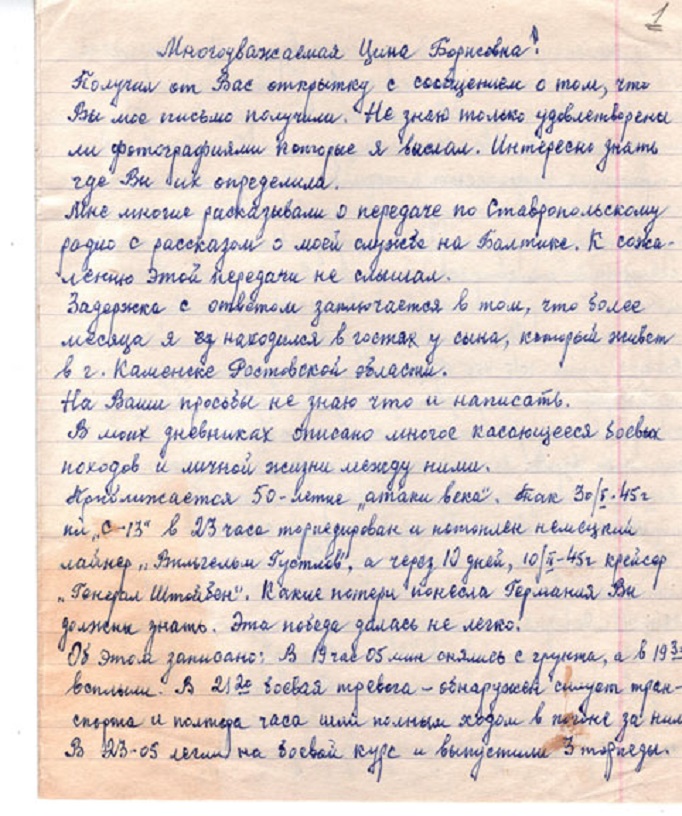 1
Многоуважаемая Цина Борисовна!
Получил от Вас открытку с сообщением о том, что
Вы мое письмо получили. Не знаю только удовлетворены
ли фотографиями которые я выслал. Интересно знать
где Вы их определила.
Мне многие рассказывали о передаче по Ставропольскому
радио с рассказом о моей службе на Балтике. К сожа-
лению этой передачи не слышал.
Задержка с ответом заключается в том, что более
месяца я находился в гостях у сына, который живет
в г. Каменске Ростовской области.
На Ваши просьбы не знаю что и написать.
В моих дневниках описано многое касающееся боевых
походов и личной жизни между ними.
Приближается 50-летие „атаки века". Так 30/I-45г
пл „С-13" в 23 часа торпедирован и потоплен немецкий
лайнер „Вильгельм Густлов", а через 10 дней, 10/II-45г крейсер
„Генерал Штойбен". Какие потери понесла Германия Вы
должны знать. Эта победа далась не легко!
Об этом записано: В 19 час 05 мин снялись с грунта, а в 19
всплыли. В 21 20 боевая тревога – обнаружен силуэт тран-
спорта и полтора часа шли полным ходом в погоне за ним
В 23-05 легли на боевой курс и выпустили 3 торпеды.